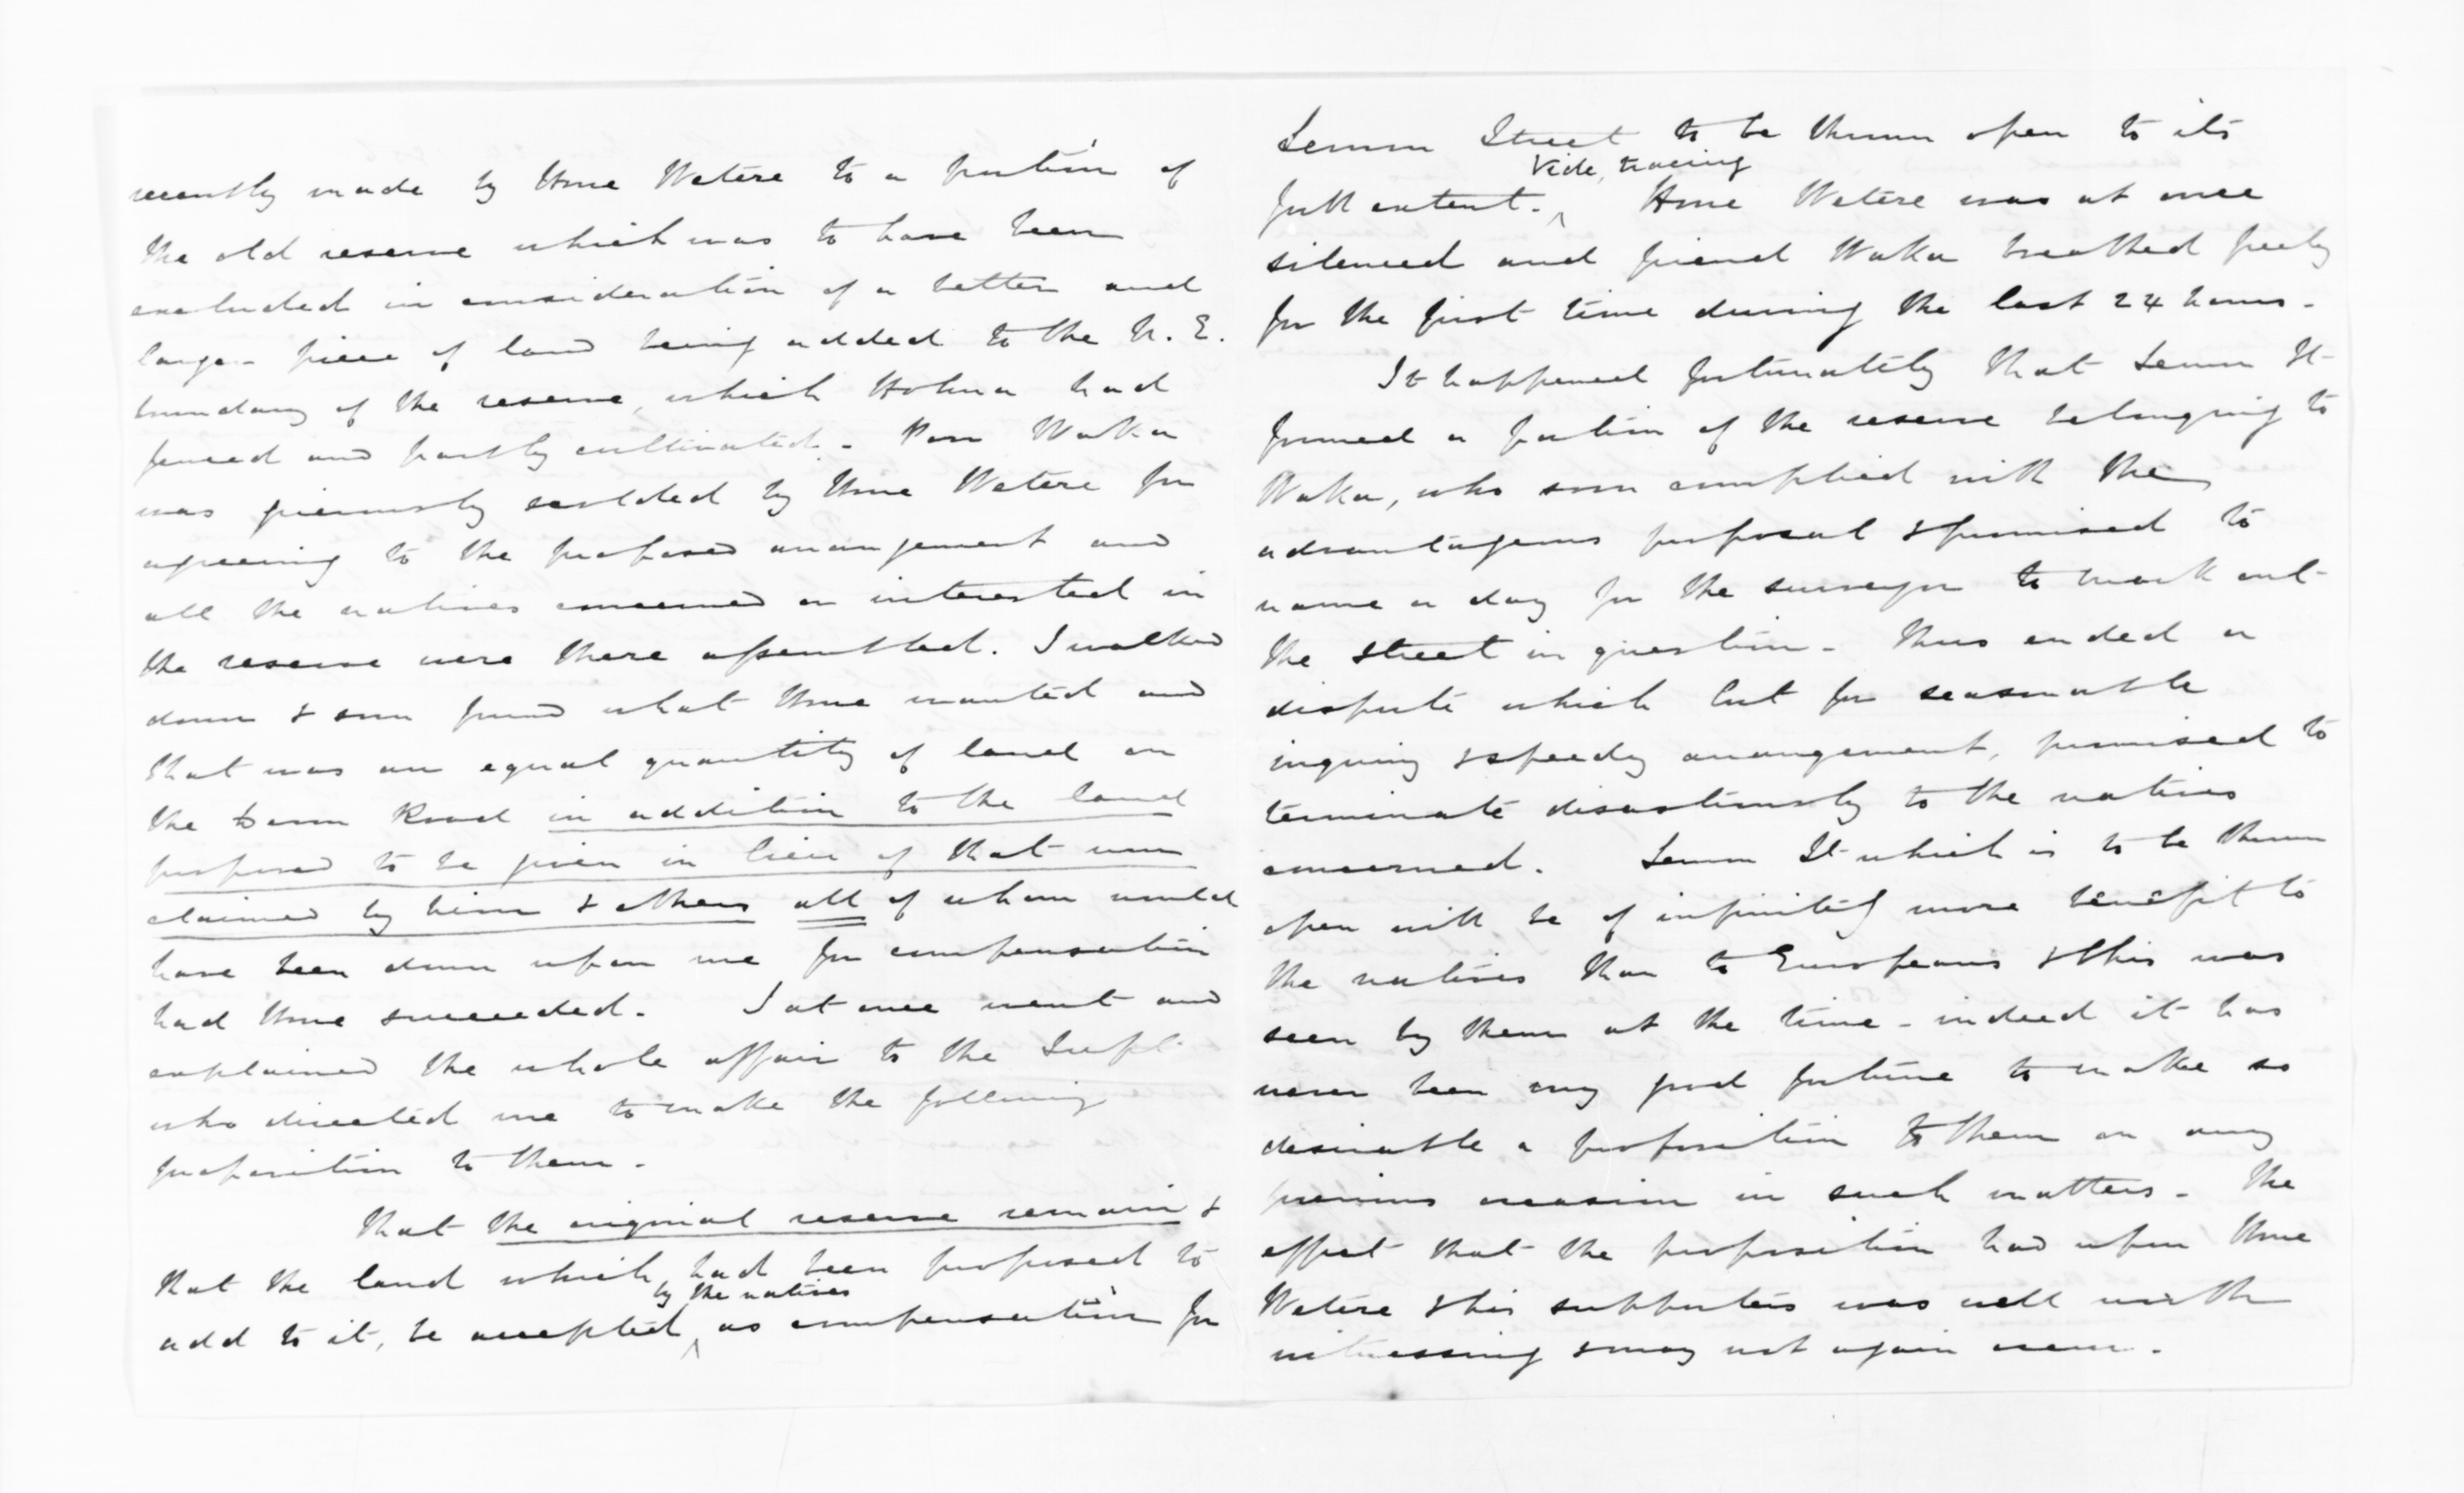 recently made by Hone Watere to a portion of
the old reserve which was to have been
excluded in consideration of a better and
larger piece of land being added to the N. E.
boundary of the reserve, which Hohua had
fenced and partly cultivated. Poor Waka
was furiously scolded by Hone Watere for
agreeing to the proposed arrangement and
all the natives concerned or interested in
the reserve were there assembled. I walked
down & soon found what Hone wanted and
that was an equal quantity of land on
the Devon Road in addition to the land
proposed to be given in lieu of that now
claimed by him & others all of whom would
have been down upon me for compensation
had Hone succeeded. I at once went and
explained the whole affair to the Supt.
who directed me to make the following
proposition to them.
That the original reserve remain &
that the land which had been proposed to
add to it, be accepted by the natives as compensation for
Lemon Street to be thrown open to its
full extent. Vide, tracing Hone Watere was at once
silenced and friend Waka breathed freely
for the first time during the last 24 hours.
It happened fortunately that Lemon St
formed a portion of the reserve belonging to
Waka, who soon complied with the
advantageous proposal & promised to
name a day for the surveyor to mark out
the street in question. Thus ended a
dispute which but for seasonable
inquiry & speedy arrangement, promised to
terminate disastrously to the natives
concerned. Lemon St which is to be thrown
open will be of infinitely more benefit to
the natives than to Europeans & this was
seen by them at the time - indeed it has
never been my good fortune to make so
desirable a proposition to them on any
previous occasion in such matters. The
effect that the proposition had upon Hone
Watere & his supporters was well worth
witnessing & may not again occur.